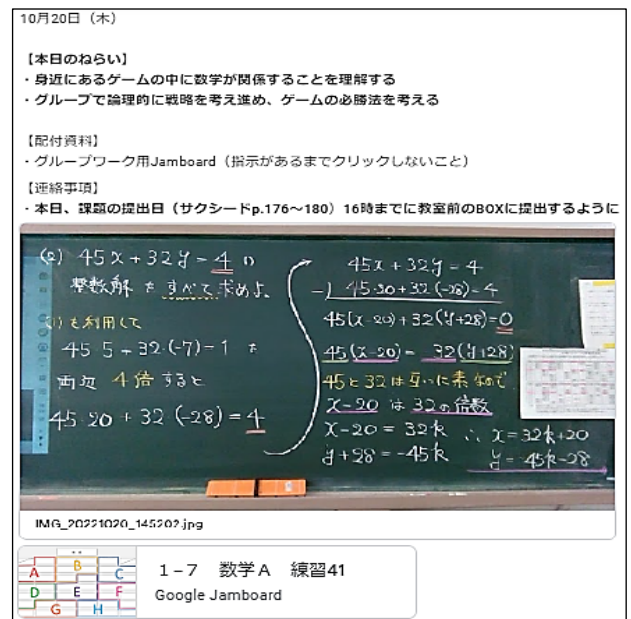 10月20日（木）
【本日のねらい】
・身近にあるゲームの中に数学が関係することを理解する
・グループで論理的に戦略を考え進め、ゲームの必勝法を考える
【配付資料】
・グループワーク用Jamboard（指示があるまでクリックしないこと）
【連絡事項】
・本日、課題の提出日（サクシードp.176～180）16時までに教室前のBOXに提出するように
(2) 45x+32y=4の
整数解をすべて求めよ。
(1)を利用して
45・5+32・(-7)=1を
両辺 4倍すると
45・20+32(-28)=4
45x+32y=4
-) 45・20+32・(-28)=4
45(x-20)+32(y+28)=0
45(x-20)= 32(y+28)
45と32は互いに素なので
x-20 は 32の倍数
x-20=32k ∴ x=32k+20
y+28=-45k y=-45k-28
IMG_20221020_145202.jpg
A B C
D E F
G H
1－7 数学A 練習41
Google Jamboard